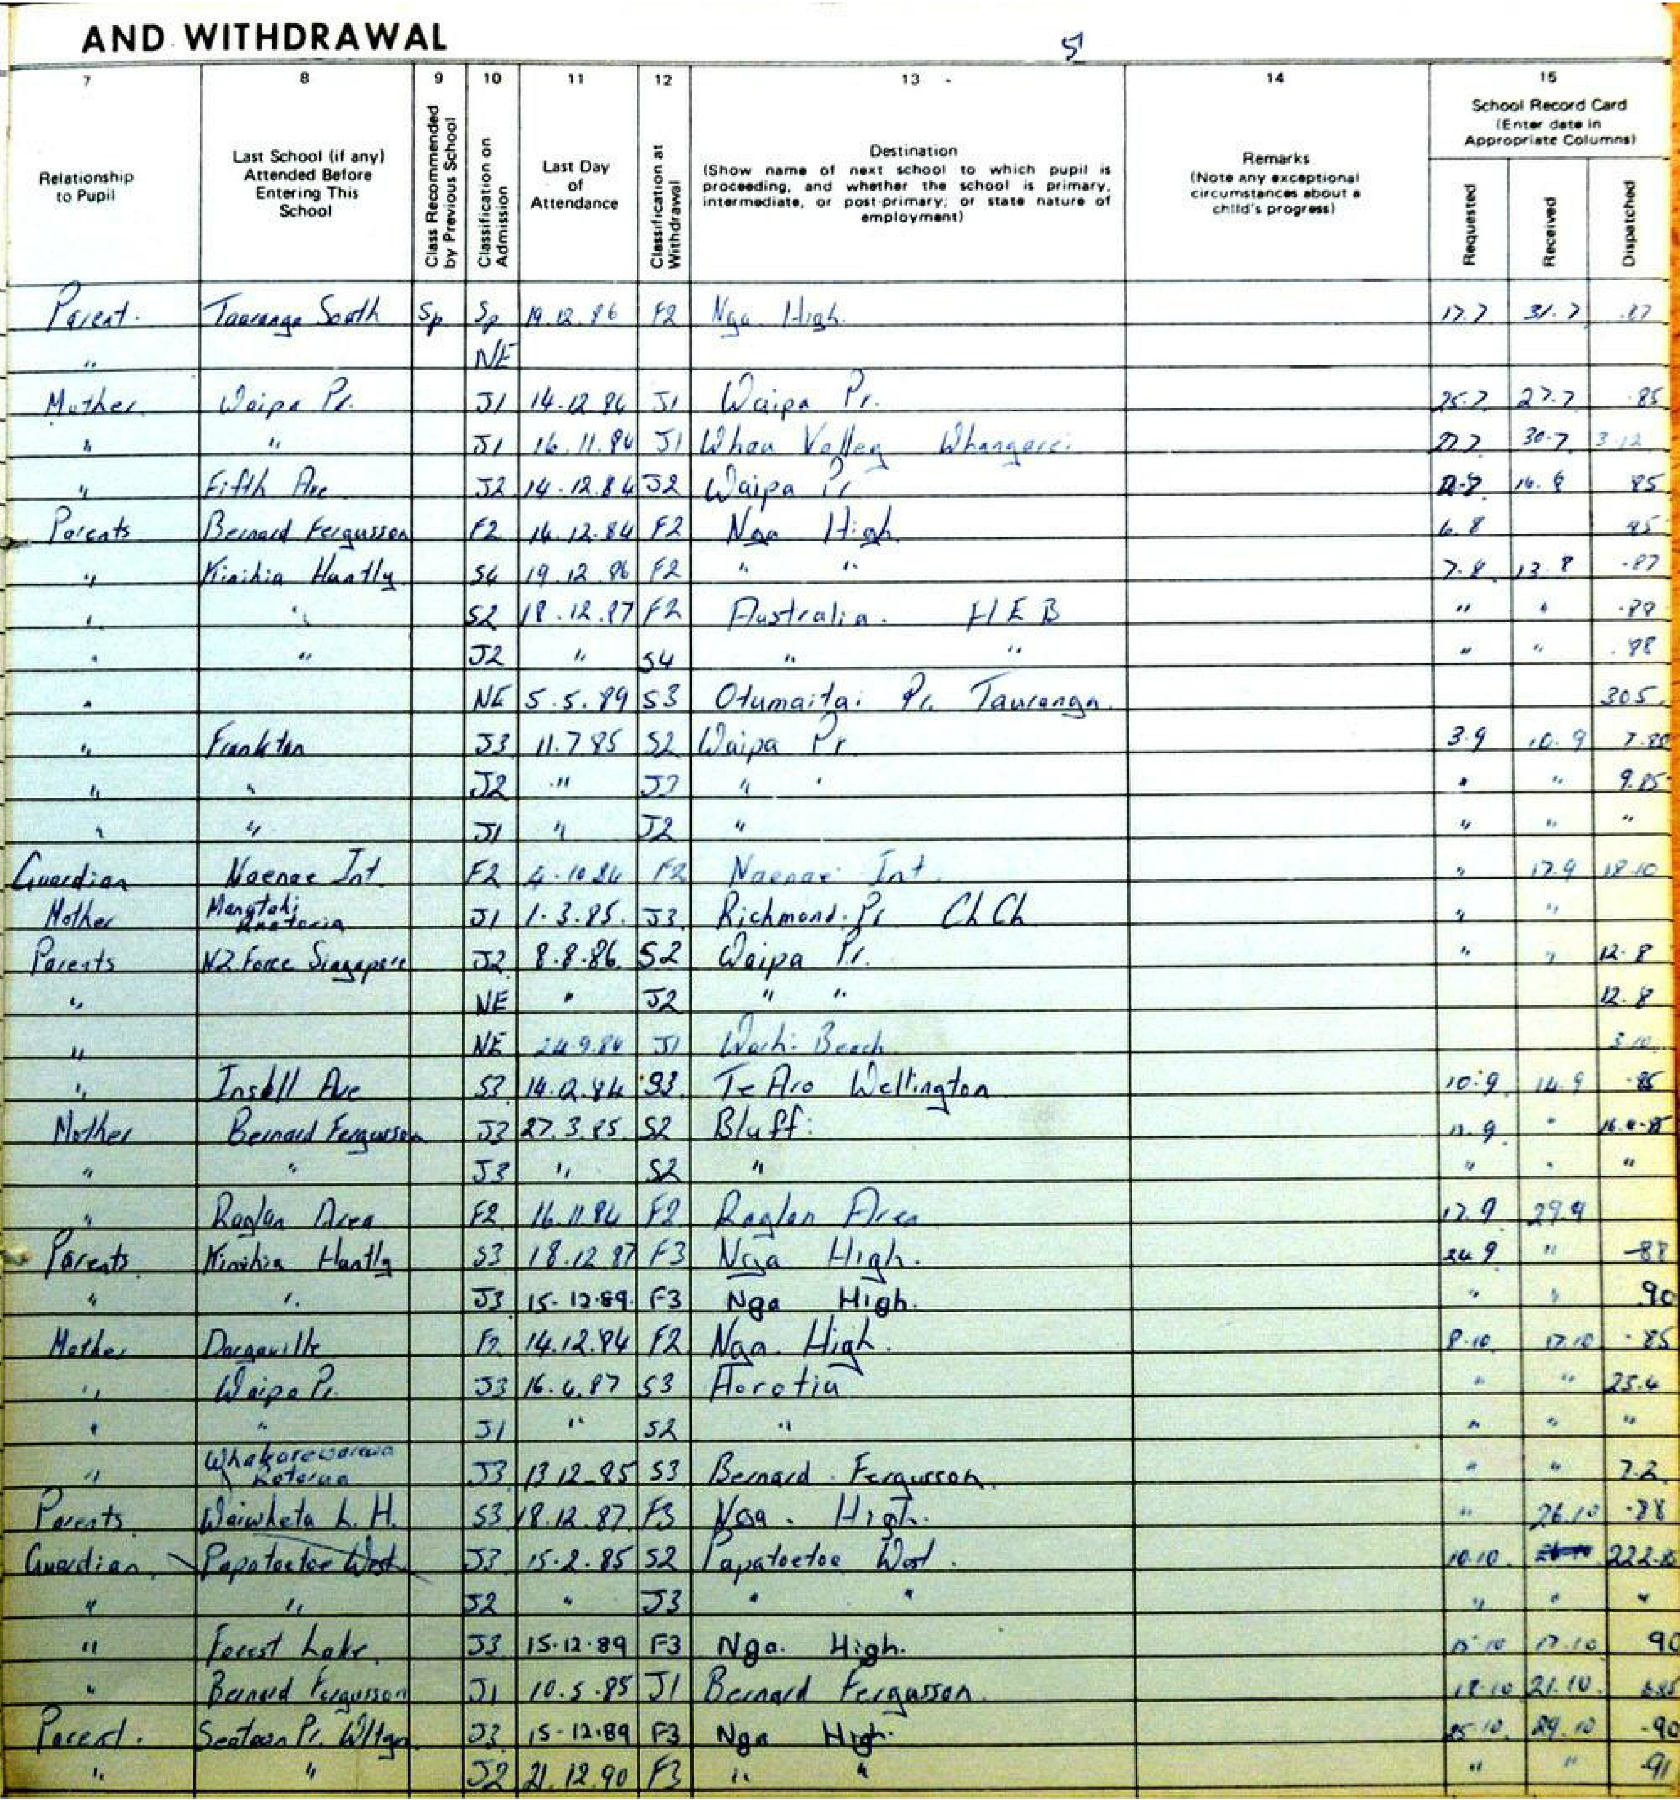 AND WITHDRAWAL
5
7 8 9 10 11 12 13 14 15
Relationship to Pupil
Last School (if any) Attended Before Entering This School
Class Recommended by Previous School
Classification on Admission
Last Day of Attendance
Classification at Withdrawal
Destination
(Show name of next school to which pupil is proceeding, and whether the school is primary, intermediate, or post-primary; or state nature of employment)
Remarks
(Note any exceptional circumstances about a child's progress)
School Record Card
(Enter date in Appropriate Columns)
Requested Received Dispatched
Parent. Tauranga South Sp Sp 19.12.86 F2 Nga. High. 17.7 31.7 .87
" NE
Mother Waipa Pr. J1 14.12.84 J1 Waipa Pr. 25.7 27.7 .85
" " J1 16.11.84 J1 Whau Valley Whangarei 30.7 3.12
" Fifth Ave J2 14.12.84 J2 Waipa Pr 14.8 85
Parents Bernard Fergusson F2 14.12.84 F2 Nga High 6.8 85
" Kimihia Huntly S4 19.12.86 F2 " " 7.8 13.8 .87
" " S2 18.12.87 F2 Australia. H E B " " .88
" " J2 " S4 " " " " .88
" NE 5.5.89 S3 Otumaitai Pr. Tauranga 30.5
" Frankton J3 11.7.85 S2 Waipa Pr 3.9 10.9
" " J2 " " " " " 9.85
" " J1 " J2 " " " "
Guardian Naenae Int. F2 4.10.84 F2 Naenae Int. " 17.9 18.10
Mother J1 1.3.85. J3 Richmond Pr ChCh " "
Parents NZ Force Singapore J2 8.8.86. S2 Waipa Pr. " " 12.8
" NE " J2 " " 12.8
" NE 24.9.84 J1 Waihi Beach 3.10
" Insoll Ave S3 14.12.84 S3 Te Aro Wellington 10.9 14.9 .85
Mother Bernard Fergusson J3 27.3.85. S2 Bluff. "
" " J3 " S2 " " " "
" Raglan Area F2 16.11.84 F2 Raglan Area 17.9 27.9
Parents Kimihia Huntly S3 18.12.87 F3 Nga High. 24.9 " -88
" " J3 15.12.89 F3 Nga High. " " .90
Mother Dargaville F2 14.12.84 F2 Nga. High. 8.10 17.10 .85
" Waipa Pr. J3 16.4.87 S3 Horotiu " " 23.4
" " J1 " S2 " " " "
" Whakarewarewa Rotorua J3 13.12.85 S3 Bernard Fergusson " " 7.2
Parents Waiwheta L.H. S3 18.12.87. F3 Nga. High. " 26.10 .88
Guardian Papatoetoe West J3 15.2.85 S2 Papatoetoe West. 10.10
" " J2 " J3 " " " " "
" Forest Lake J3 15.12.89 F3 Nga. High. 17.10 90
" Bernard Fergusson J1 10.5.85 J1 Bernard Fergusson 18.10 21.10.
Parent. Seatoun Pr. Wltgn. J3 15.12.89 F3 Nga High. 25.10. 29.10 .90
" " J2 21.12.90 F3 " " " " .91